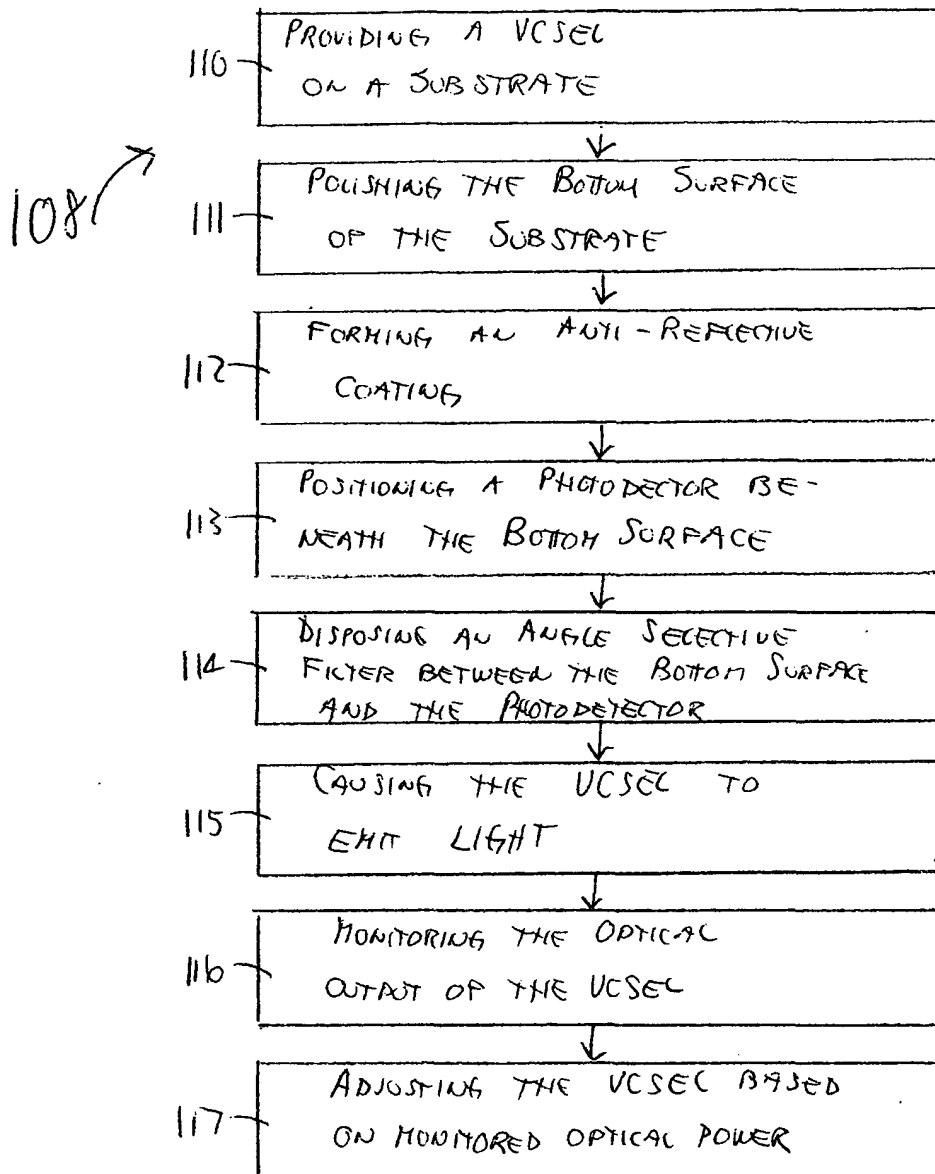 110
PROVIDING A VCSEL
ON A SUBSTRATE
108
111
POLISHING THE BOTTOM SURFACE
OF THE SUBSTRATE
112
FORMING AN ANTI-REFLECTIVE
COATING
113
POSITIONING A PHOTODECTOR BE-
NEATH THE BOTTOM SURFACE
114
DISPOSING AN ANGLE SELECTIVE
FILTER BETWEEN THE BOTTOM SURFACE
AND THE PHOTODETECTOR
115
CAUSING THE VCSEL TO
EMIT LIGHT
116
MONITORING THE OPTICAL
OUTPUT OF THE VCSEL
117
ADJUSTING THE VCSEL BASED
ON MONITORED OPTICAL POWER